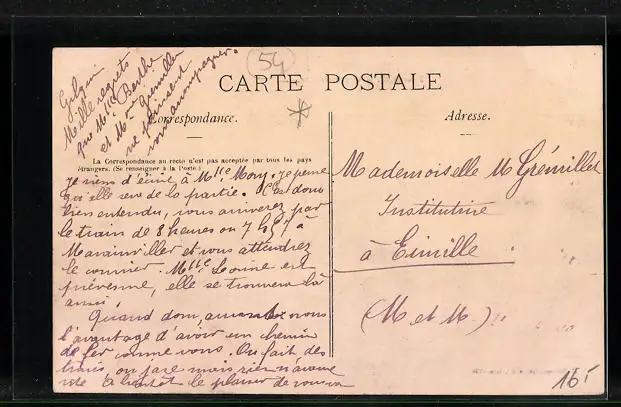 Gelgin
Mille regrets
que Mlle Barbe
et Mme Grémillet
ne puissent
vous accompagner.
54
CARTE POSTALE
Correspondance.
La Correspondance au recto n'est pas acceptée par tous les pays
étrangers. (Se renseigner à la Poste.)
Je viens d'écrire à Mlle Mory. Je pense
qu'elle sera de la partie. C'est donc
bien entendu, vous arriverez par
le train de 8 heures ou 7h57 à
Marainviller et vous attendrez
le courrier. Mlle Louise est
prévenue, elle se trouvera là
aussi.
Quand donc aurons nous
l'avantage d'avoir un chemin
de fer comme vous. On fait des
tracés, on jase mais rien n'avance
vite. A bientôt le plaisir de vous
Adresse.
Mademoiselle M Grémillet
Institutrice
à Einville
(M et M)
16